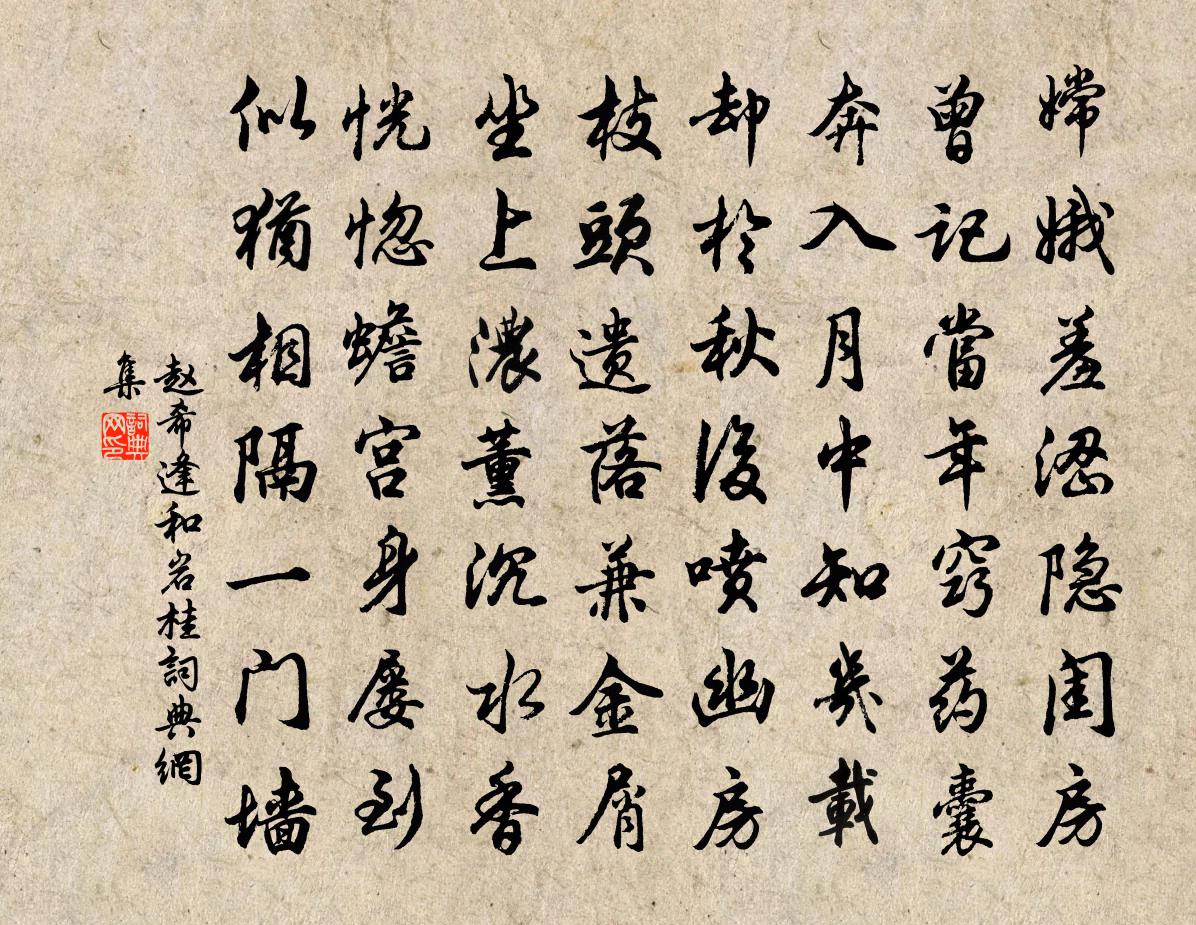 嫦娥羞涩隐闺房
曾记當年窃药囊
奔入月中知几載
却於秋後喷幽房
枝頭遗落兼金屑
坐上濃薰沉水香
恍惚蟾宫身屡到
似犹相隔一门墙
赵希逢和岩桂詞典網
集
詞典网印